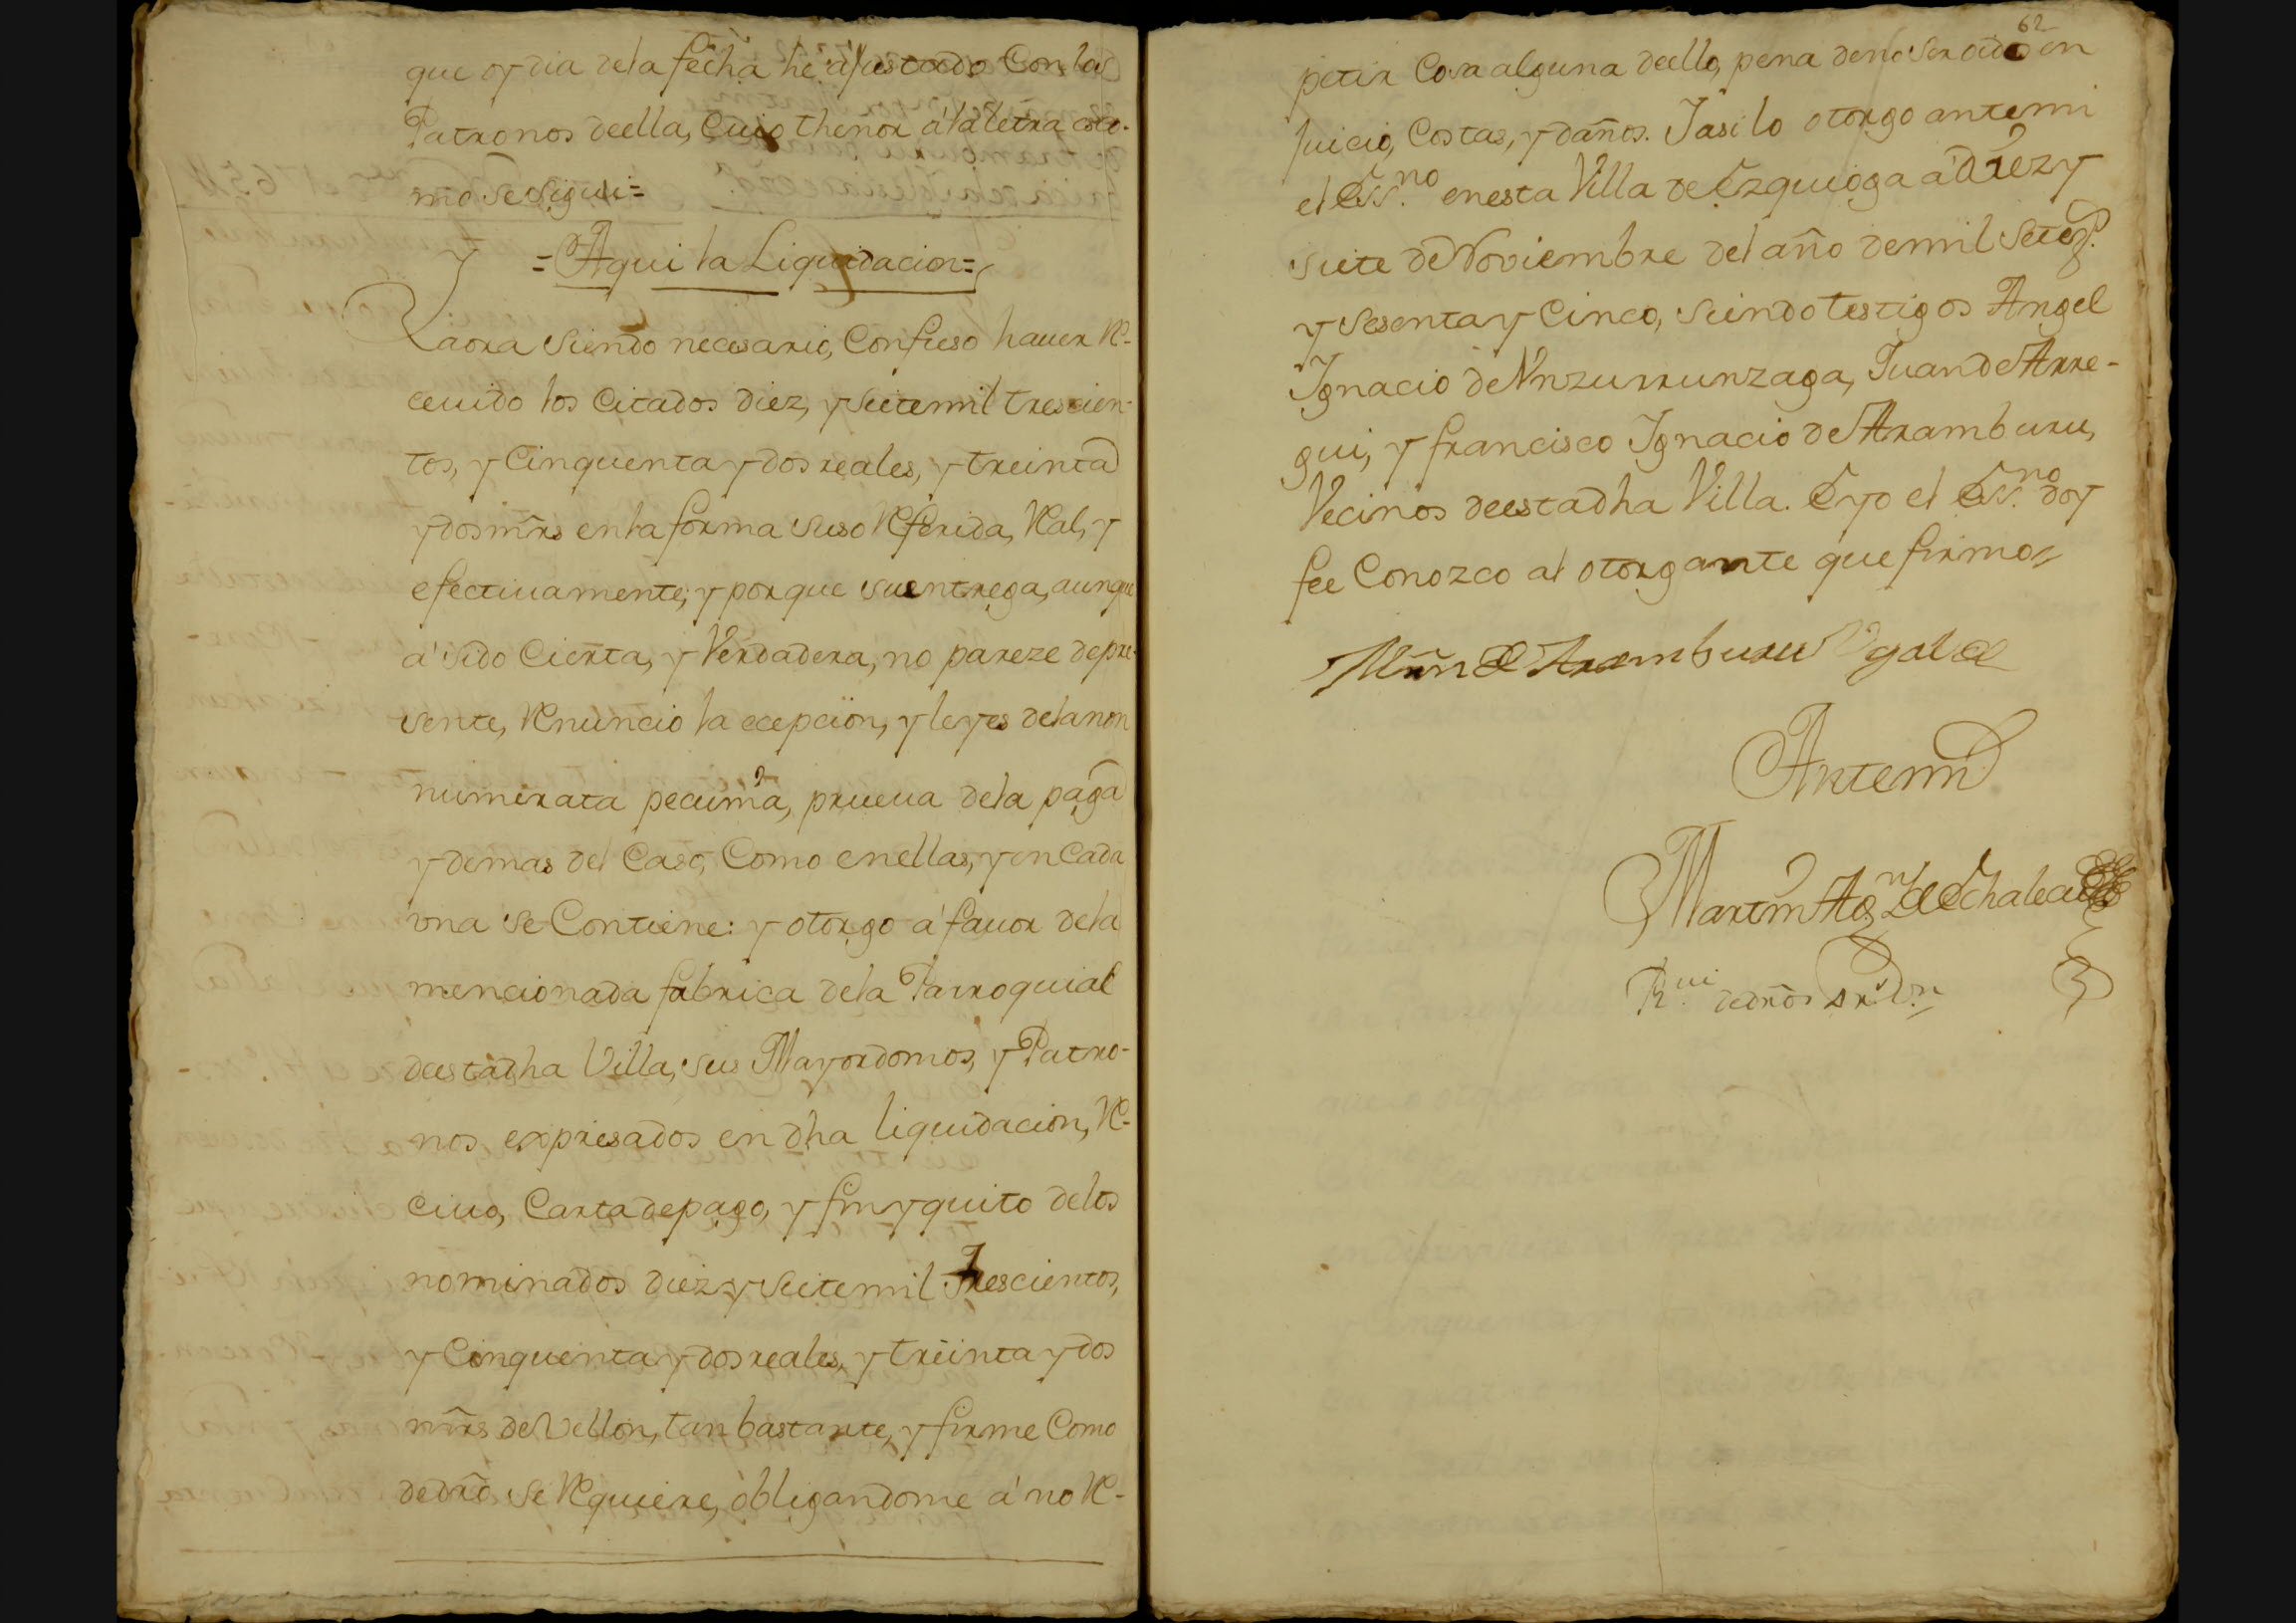 que oy dia dela fecha he ajustado Con los
Patronos deella, Cuio thenor á la letra es co-
mo se sigui=
=Aqui la Liquidacion=
Y aora siendo necesario, Confieso hauer Re-
ceuido los Citados diez, y siete mil trescien-
tos, y Cinquenta y dos reales, y treinta
y dos mrs en la forma suso Referida, Real, y
efectiuamente, y porque su entrega, aunque
á sido Cierta, y Verdadera, no pareze de pre-
sente, Renuncio la ecepcion, y leyes dela non
numerata pecunia, prueua dela paga
y demas del Caso, Como en ellas, y en Cada
vna se Contiene: y otorgo á fauor dela
mencionada fabrica dela Parroquial
deesta dha Villa, sus Mayordomos, y Patro-
nos expresados en dha liquidacion, Re-
ciuo, Carta de pago, y fin y quito delos
nominados diez y siete mil Trescientos,
y Cinquenta y dos reales, y treinta y dos
mrs de Vellon, tan bastante, y firme Como
de dro se Requiere, obligandome á no Re-
62
petir Cosa alguna deello, pena de no ser oido en
Juicio, Costas, y daños. Y asi lo otorgo ante mi
el Essno en esta Villa de Ezquioga á Diez y
siete de Noviembre del año de mil Setezs
y sesenta y Cinco, siendo testigos Angel
Ignacio de Vnzurrunzaga, Juan de Arre-
gui, y francisco Ignacio de Aramburu,
Vecinos deesta dha Villa. E yo el Essno doy
fee Conozco al otorgante que firmo
Mrn de Aramburu Vgalde
Ante mi
Martin Agn de Echaleau
Rui dedros